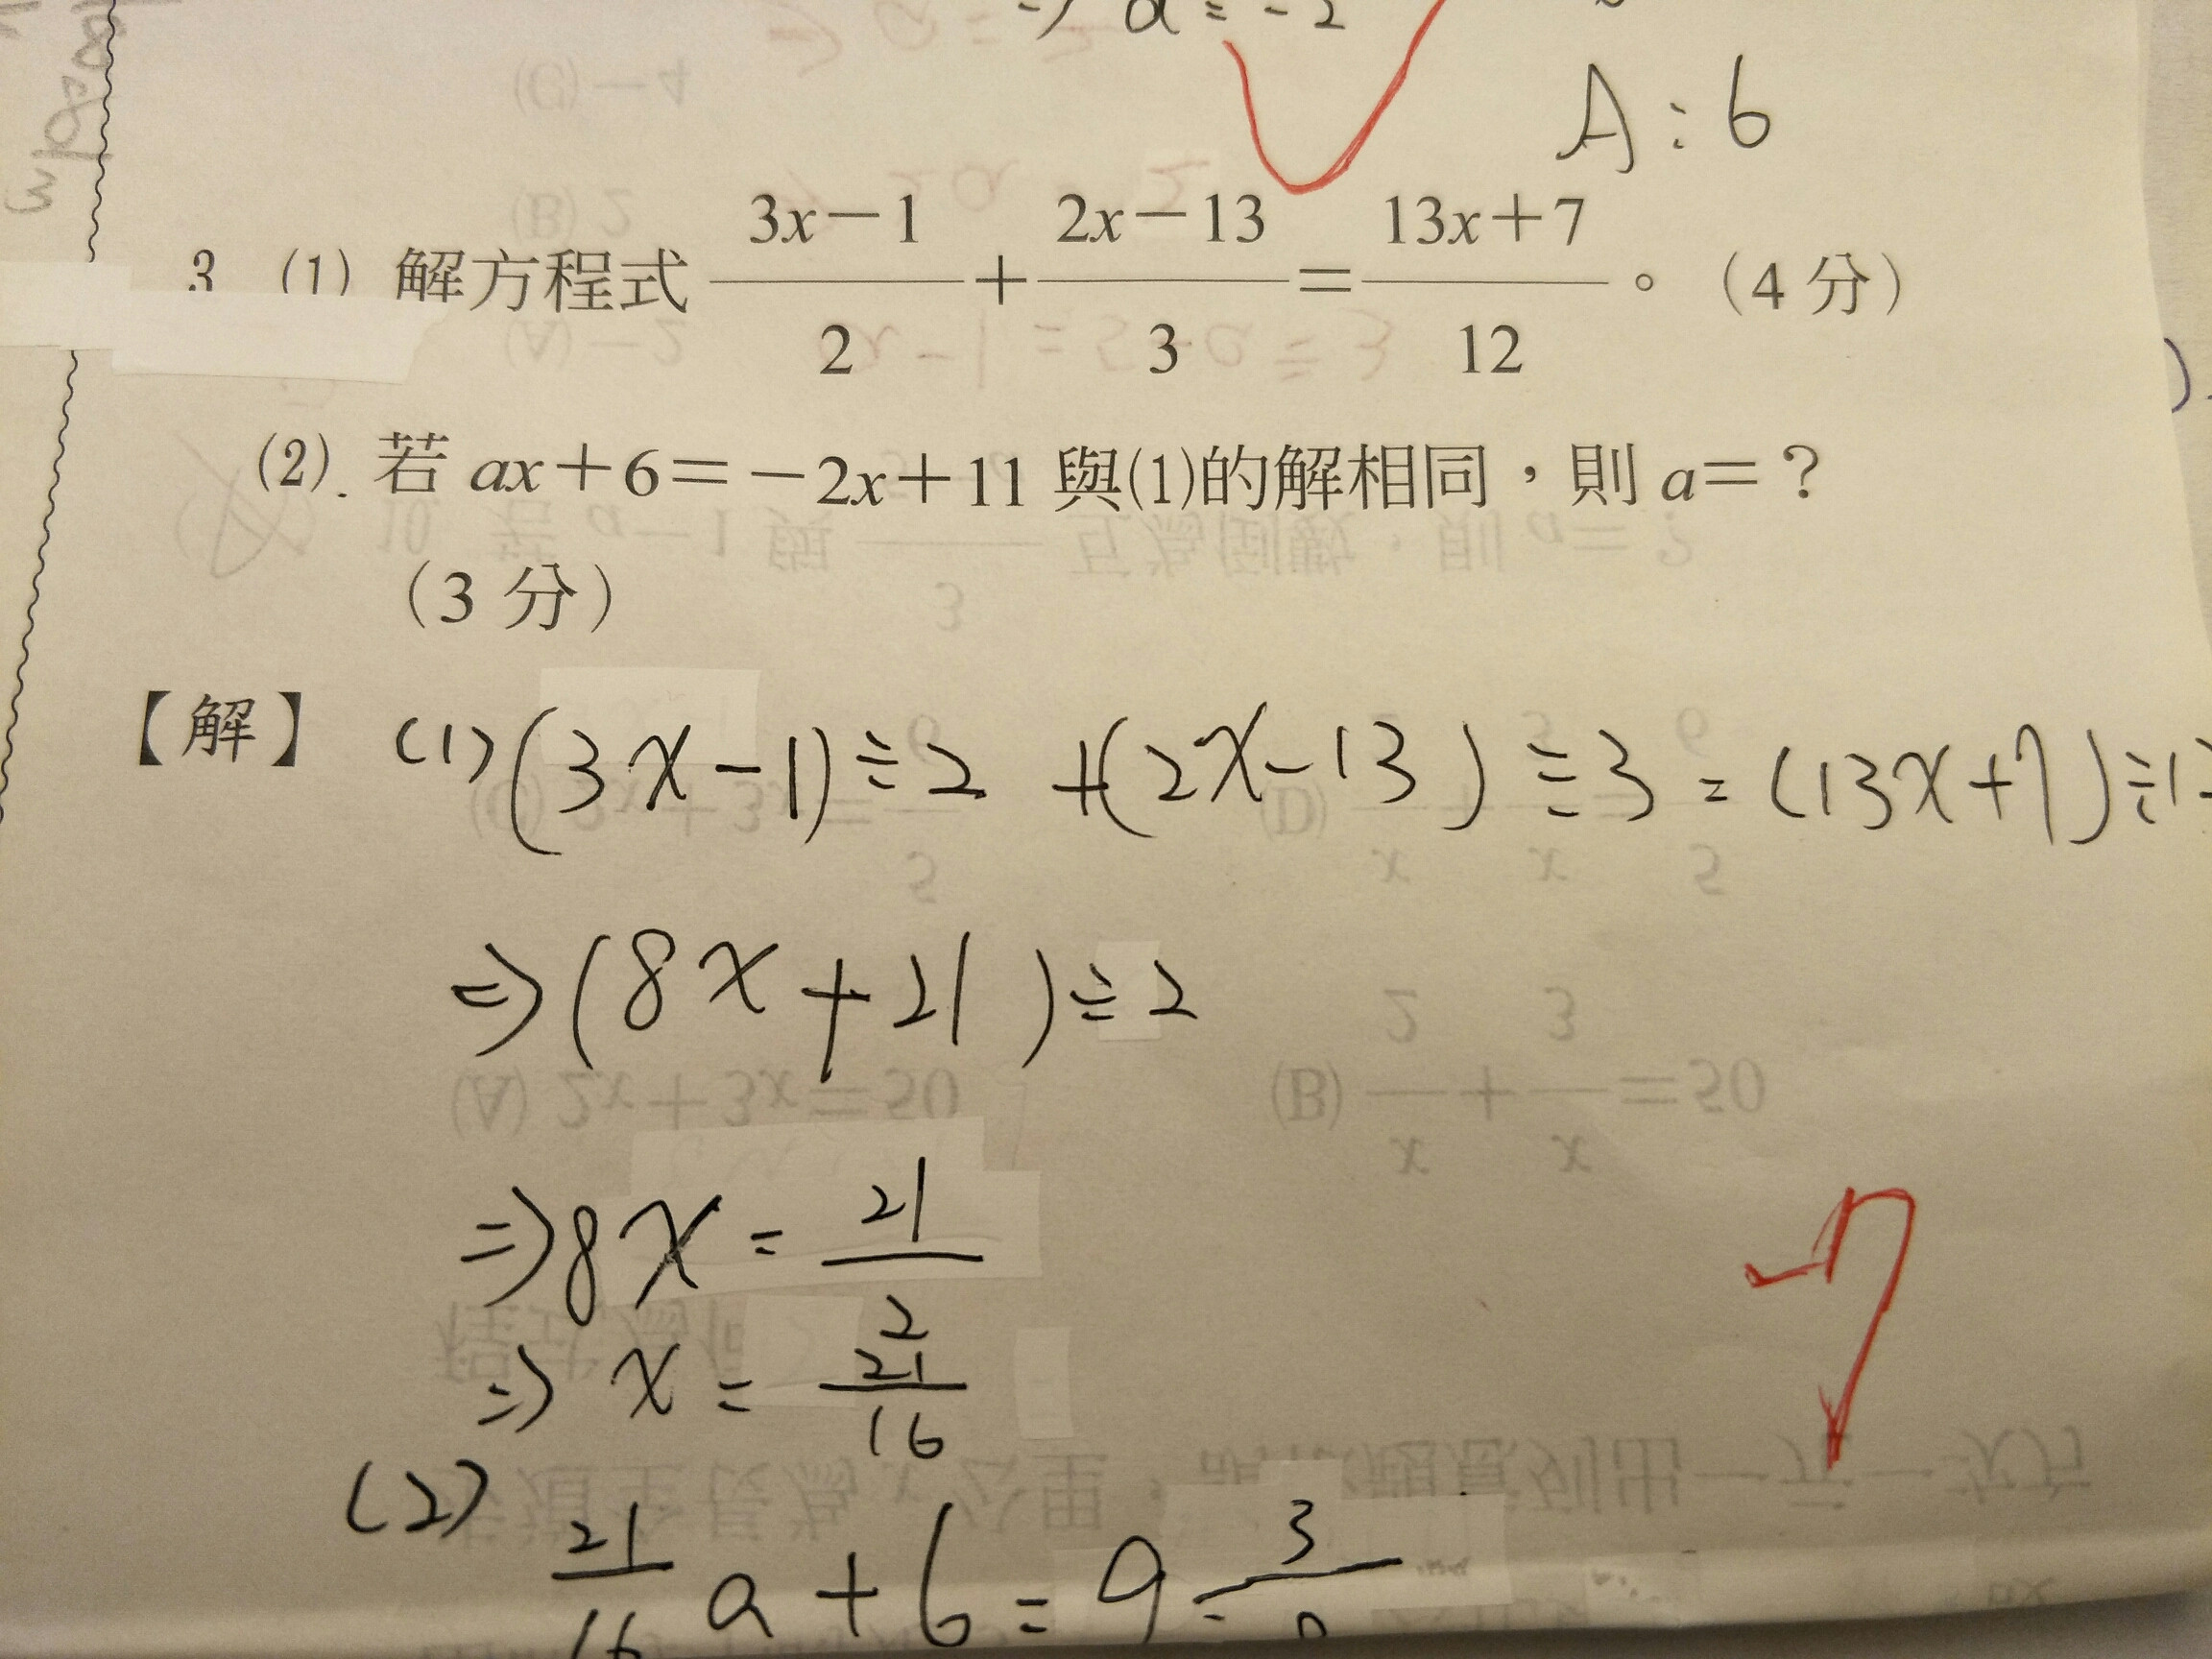 ⇒ a = -2
A：6
3 (1) 解方程式 \frac{3x-1}{2}+\frac{2x-13}{3}=\frac{13x+7}{12}。（4 分）
(2). 若 ax+6=-2x+11 與(1)的解相同，則 a=？
（3 分）
【解】 (1) (3x-1)÷2 +(2x-13)÷3 = (13x+7)÷12
⇒ (8x+21)÷2
⇒ 8x = \frac{21}{2}
⇒ x = \frac{21}{16}
-7
(2) \frac{21}{16} a + 6 = 9